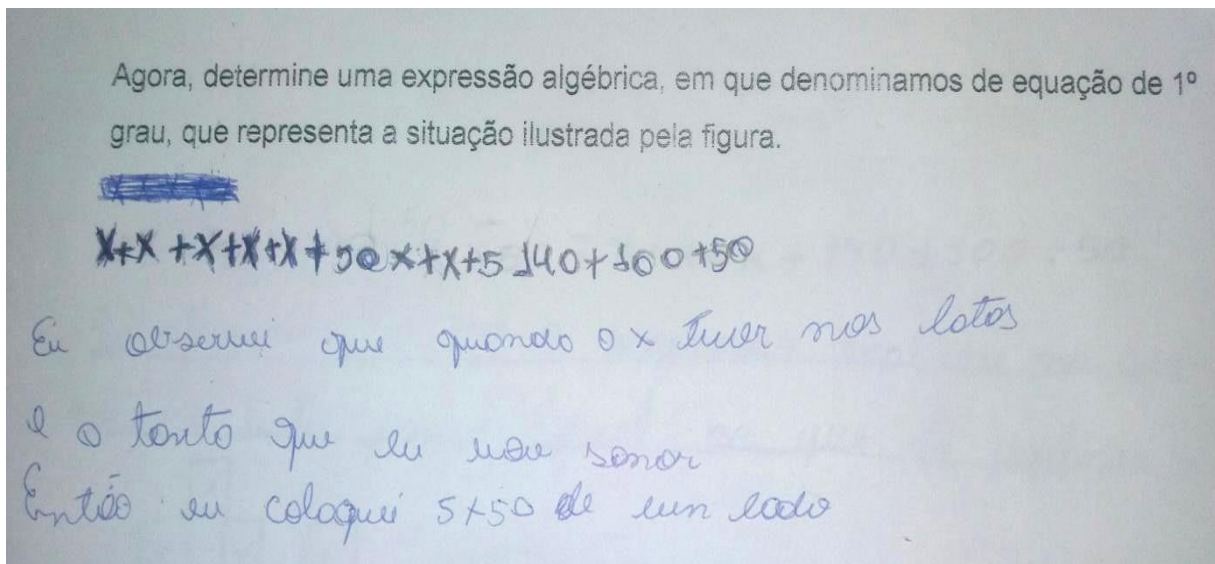 Agora, determine uma expressão algébrica, em que denominamos de equação de 1º
grau, que representa a situação ilustrada pela figura.
x+x+x+x+x+50 x+x+5 140+100+50
Eu observei que quando o x tiver nos latos
e o tanto que eu vou somor
Então eu coloquei 5x50 de um lado